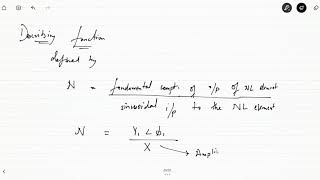 Describing function
defined by
N = fundamental compt of o/p of NL element
sinusoidal i/p to the NL element
N = Y₁ ∠ φ₁
X → Ampli